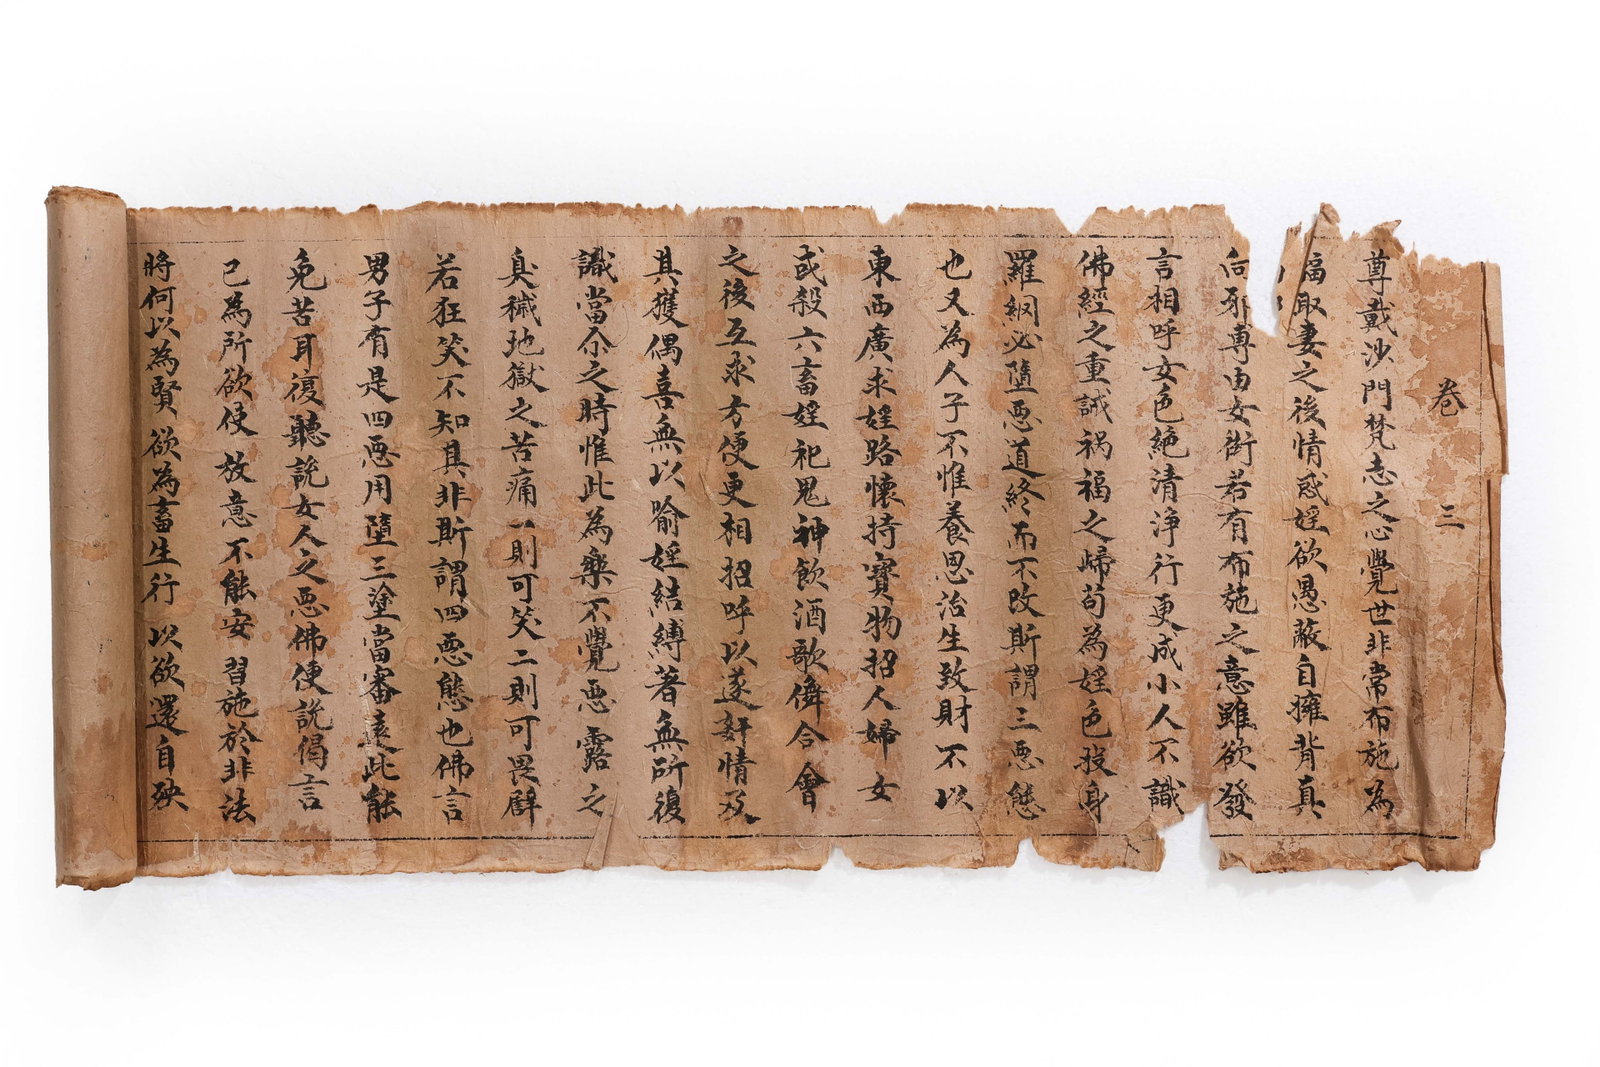 卷 三
尊戴沙門梵志之心覺世非常布施為
福取妻之後情惑婬欲愚蔽自擁背真
向邪專由女衒若有布施之意雖欲發
言相呼女色絕清淨行更成小人不識
佛經之重誡禍福之歸苟為婬色投身
羅網必墮惡道終而不改斯謂三惡態
也又為人子不惟養恩治生致財不以
東西廣求婬路懷持寶物招人婦女
或殺六畜婬祀鬼神飲酒歌儛合會
之後互求方便更相招呼以遂奸情及
其獲偶喜無以喻婬結縛著無所復
識當尒之時惟此為樂不覺惡露之
臭穢地獄之苦痛一則可笑二則可畏譬
若狂笑不知其非斯謂四惡態也佛言
男子有是四惡用墮三塗當審遠此能
免苦耳復聽說女人之惡佛便說偈言
已為所欲使 放意不能安 習施於非法
將何以為賢 欲為畜生行 以欲還自殃